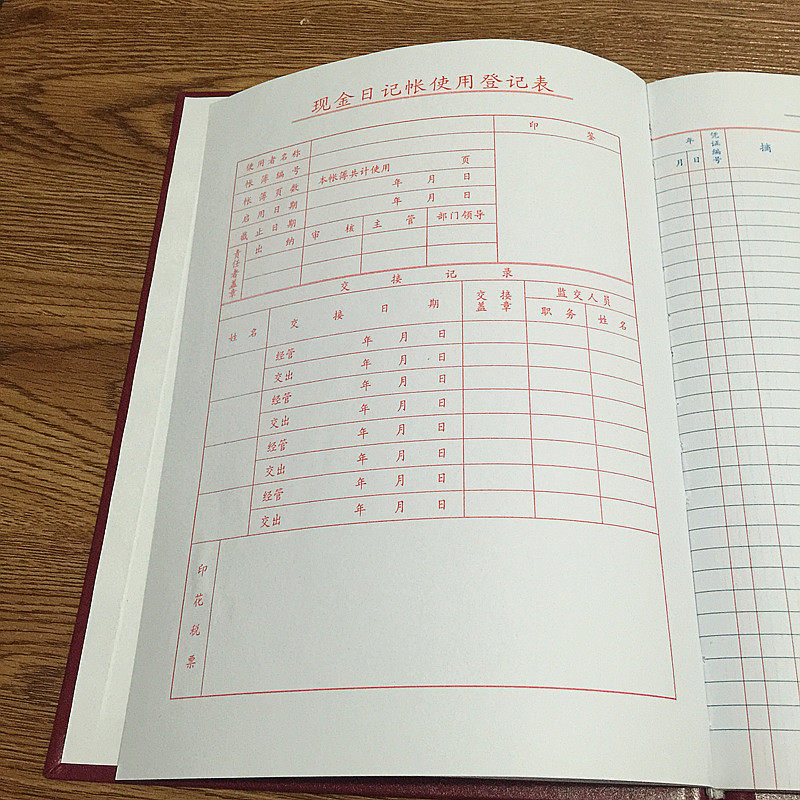 现金日记帐使用登记表
使用者名称
印 鉴
帐簿编号
帐簿页数 本帐簿共计使用 页
启用日期 年 月 日
截止日期 年 月 日
责任者盖章 出 纳 审 核 主 管 部门领导
交 接 记 录
姓 名 交 接 日 期 交 接 盖 章 监交人员
职 务 姓 名
经管 年 月 日
交出 年 月 日
经管 年 月 日
交出 年 月 日
经管 年 月 日
交出 年 月 日
经管 年 月 日
交出 年 月 日
印花税票
年 凭证编号 摘
月 日